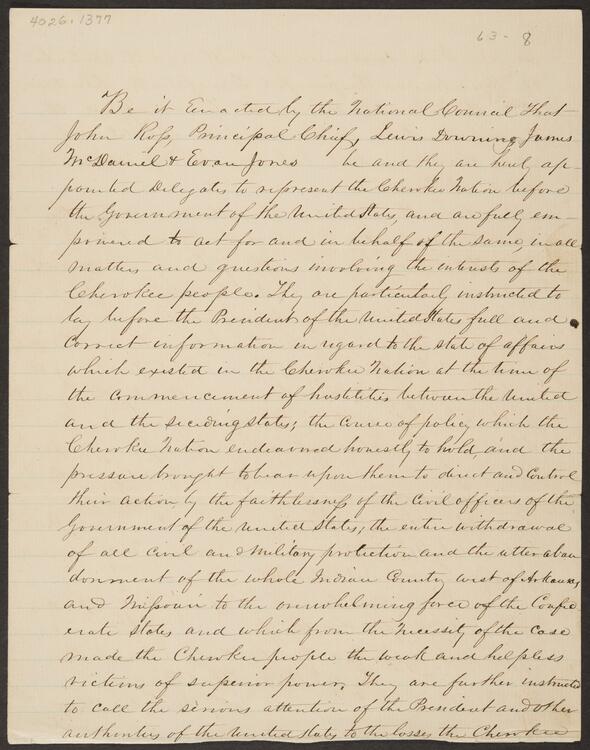 4026.1377
63-8
Be it Enacted by the National Council That
John Ross, Principal Chief, Lewis Downing, James
McDaniel & Evan Jones be and they are hereby ap-
pointed Delegates to represent the Cherokee Nation before
the Government of the United States, and are fully em-
powered to act for and in behalf of the same, in all
matters and questions involving the interests of the
Cherokee people. They are particularly instructed to
lay before the President of the United States full and
correct information in regard to the state of affairs
which existed in the Cherokee Nation at the time of
the commencement of hostilities between the United
and the seceding States; the course of policy which the
Cherokee Nation endeavored honestly to hold and the
pressure brought to bear upon them to direct and control
their action by the faithlessness of the Civil officers of the
Government of the United States; the entire withdrawal
of all Civil and Military protection and the utter aban
donment of the whole Indian Country west of Arkansas
and Missouri to the overwhelming force of the Confed
erate States and which from the necessity of the case
made the Cherokee people the weak and helpless
victims of superior power. They are further instructed
to call the serious attention of the President and other
authorities of the United States to the losses the Cherokee